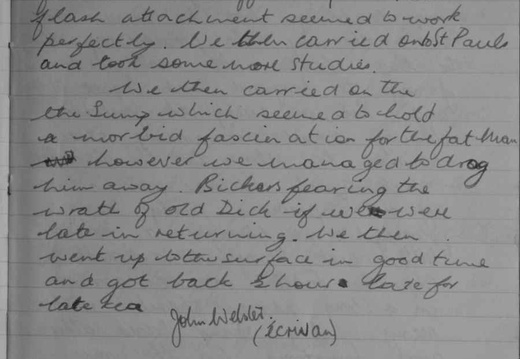 flash attachment seemed to work
perfectly. We then carried onto St Pauls
and took some more studies.
We then carried on the
the Sump which seemed to hold
a morbid fascination for the fat man
however we managed to drag
him away. Bickers fearing the
wrath of old Dick if we were
late in returning. We then
went up to the surface in good time
and got back ½ hour late for
late tea
John Webster.
(écrivan)